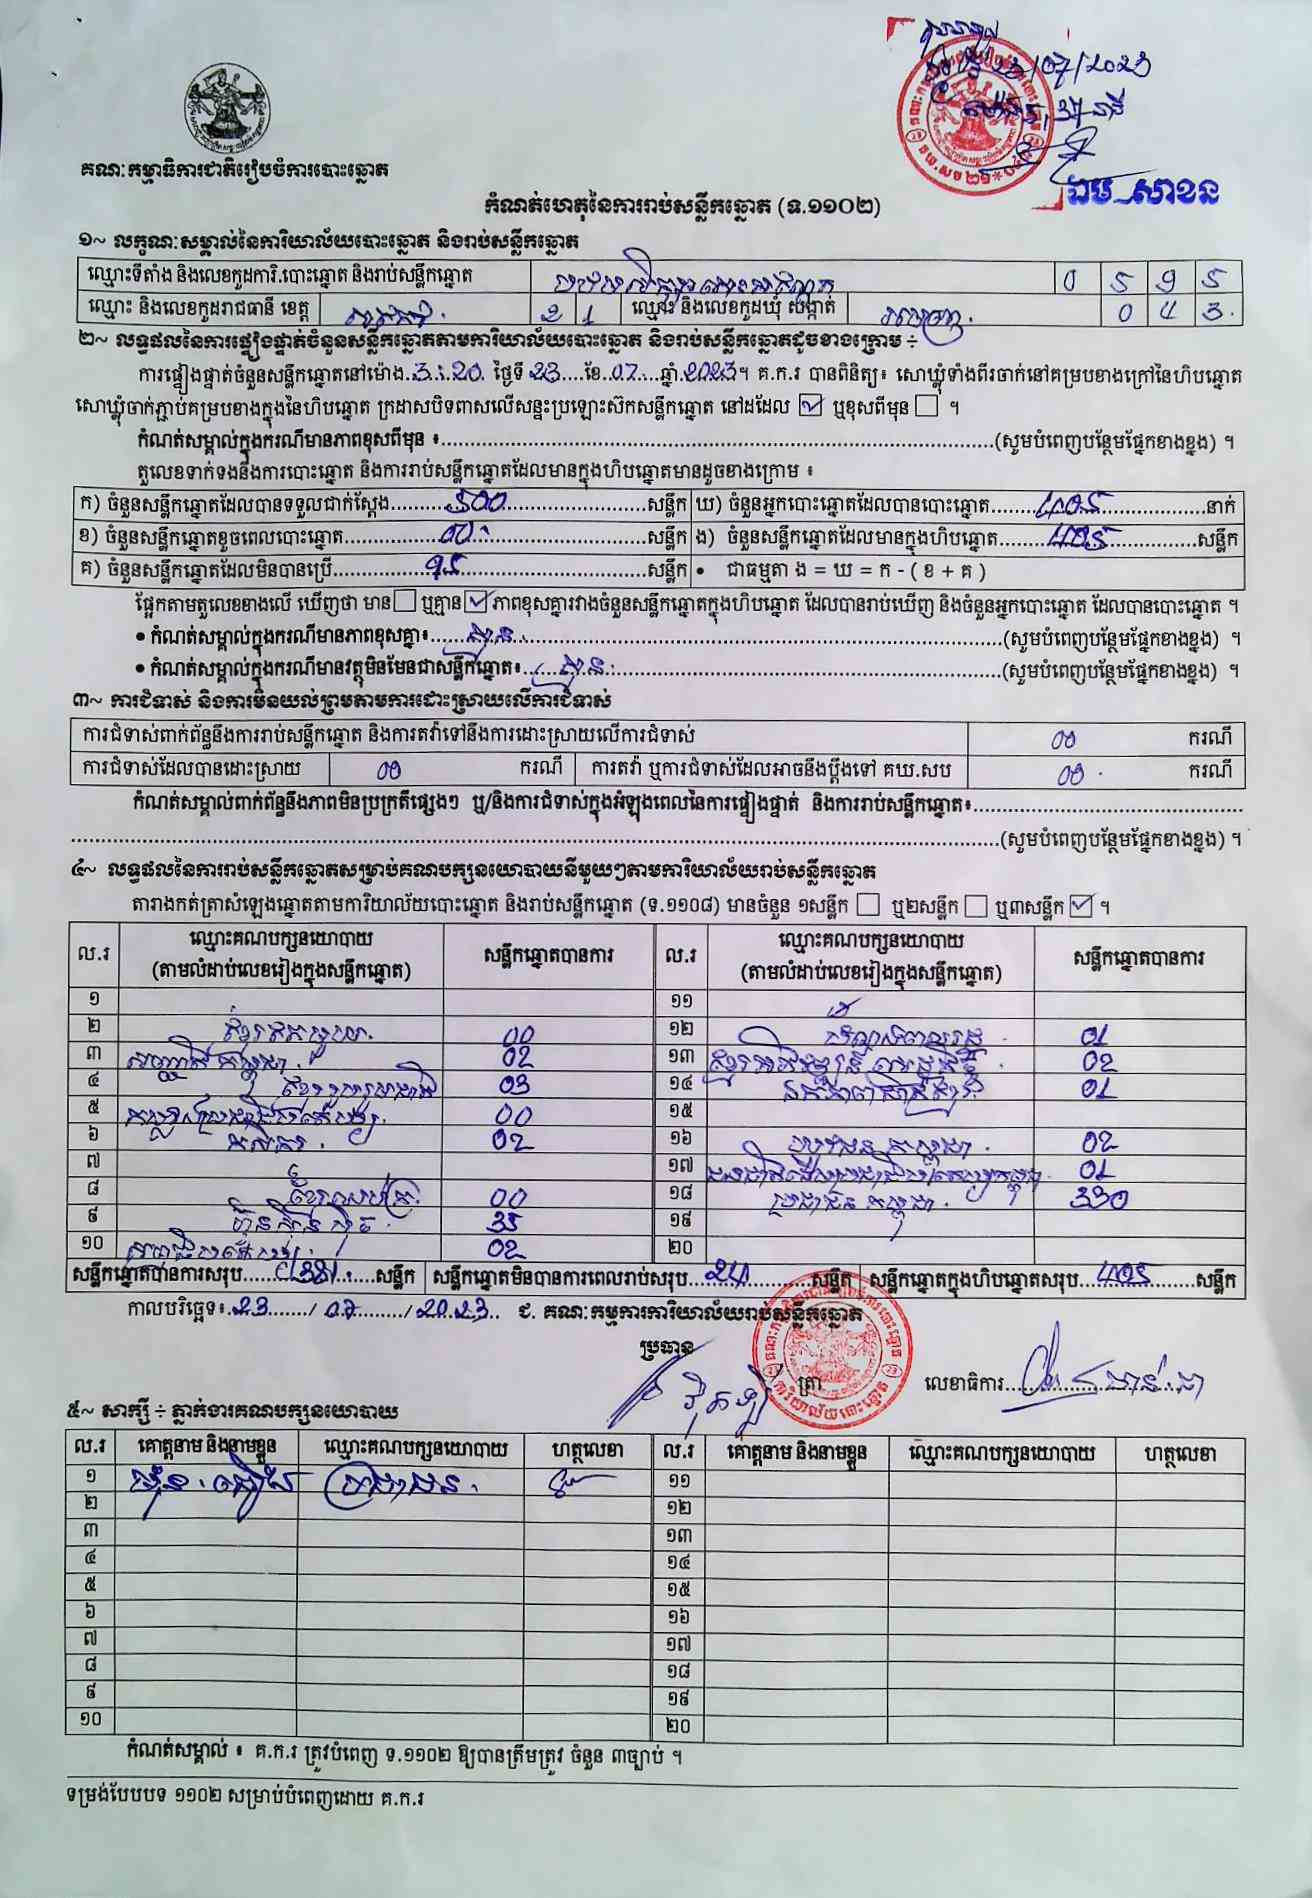 23/07/2023
ឯម សាខន
គណៈកម្មាធិការជាតិរៀបចំការបោះឆ្នោត
កំណត់ហេតុនៃការរាប់សន្លឹកឆ្នោត (ទ.១១០២)
១~ លក្ខណៈសម្គាល់នៃការិយាល័យបោះឆ្នោត និងរាប់សន្លឹកឆ្នោត
ឈ្មោះទីតាំង និងលេខកូដការិ.បោះឆ្នោត និងរាប់សន្លឹកឆ្នោត 0 5 9 5
ឈ្មោះ និងលេខកូដរាជធានី ខេត្ត 2 1 ឈ្មោះ និងលេខកូដឃុំ សង្កាត់ 0 4 3
២~ លទ្ធផលនៃការផ្ទៀងផ្ទាត់ចំនួនសន្លឹកឆ្នោតតាមការិយាល័យបោះឆ្នោត និងរាប់សន្លឹកឆ្នោតដូចខាងក្រោម ÷
ការផ្ទៀងផ្ទាត់ចំនួនសន្លឹកឆ្នោតនៅម៉ោង 3:20 ថ្ងៃទី 23 ខែ 07 ឆ្នាំ 2023។ គ.ក.រ បានពិនិត្យ៖ សោឃ្លុំទាំងពីរចាក់នៅគម្របខាងក្រៅនៃហិបឆ្នោត
សោឃ្លុំចាក់ភ្ជាប់គម្របខាងក្នុងនៃហិបឆ្នោត ក្រដាសបិទពាសលើសន្ទះប្រឡោះស៊កសន្លឹកឆ្នោត នៅដដែល ☑ ឬខុសពីមុន ☐ ។
កំណត់សម្គាល់ក្នុងករណីមានភាពខុសពីមុន ៖ (សូមបំពេញបន្ថែមផ្នែកខាងខ្នង) ។
តួលេខទាក់ទងនឹងការបោះឆ្នោត និងការរាប់សន្លឹកឆ្នោតដែលមានក្នុងហិបឆ្នោតមានដូចខាងក្រោម ៖
ក) ចំនួនសន្លឹកឆ្នោតដែលបានទទួលជាក់ស្តែង 500 សន្លឹក ឃ) ចំនួនអ្នកបោះឆ្នោតដែលបានបោះឆ្នោត 405 នាក់
ខ) ចំនួនសន្លឹកឆ្នោតខូចពេលបោះឆ្នោត 00 សន្លឹក ង) ចំនួនសន្លឹកឆ្នោតដែលមានក្នុងហិបឆ្នោត 405 សន្លឹក
គ) ចំនួនសន្លឹកឆ្នោតដែលមិនបានប្រើ 95 សន្លឹក • ជាធម្មតា ង = ឃ = ក - ( ខ + គ )
ផ្អែកតាមតួលេខខាងលើ ឃើញថា មាន ☐ ឬគ្មាន ☑ ភាពខុសគ្នារវាងចំនួនសន្លឹកឆ្នោតក្នុងហិបឆ្នោត ដែលបានរាប់ឃើញ និងចំនួនអ្នកបោះឆ្នោត ដែលបានបោះឆ្នោត ។
• កំណត់សម្គាល់ក្នុងករណីមានភាពខុសគ្នា៖ គ្មាន (សូមបំពេញបន្ថែមផ្នែកខាងខ្នង) ។
• កំណត់សម្គាល់ក្នុងករណីមានវត្ថុមិនមែនជាសន្លឹកឆ្នោត៖ គ្មាន (សូមបំពេញបន្ថែមផ្នែកខាងខ្នង) ។
៣~ ការជំទាស់ និងការមិនយល់ព្រមតាមការដោះស្រាយលើការជំទាស់
ការជំទាស់ពាក់ព័ន្ធនឹងការរាប់សន្លឹកឆ្នោត និងការតវ៉ាទៅនឹងការដោះស្រាយលើការជំទាស់ 00 ករណី
ការជំទាស់ដែលបានដោះស្រាយ 00 ករណី ការតវ៉ា ឬការជំទាស់ដែលអាចនឹងប្តឹងទៅ គឃ.សប 00 ករណី
កំណត់សម្គាល់ពាក់ព័ន្ធនឹងភាពមិនប្រក្រតីផ្សេងៗ ឬ/និងការជំទាស់ក្នុងអំឡុងពេលនៃការផ្ទៀងផ្ទាត់ និងការរាប់សន្លឹកឆ្នោត៖
(សូមបំពេញបន្ថែមផ្នែកខាងខ្នង) ។
៤~ លទ្ធផលនៃការរាប់សន្លឹកឆ្នោតសម្រាប់គណបក្សនយោបាយនីមួយៗតាមការិយាល័យរាប់សន្លឹកឆ្នោត
តារាងកត់ត្រាសំឡេងឆ្នោតតាមការិយាល័យបោះឆ្នោត និងរាប់សន្លឹកឆ្នោត (ទ.១១០៨) មានចំនួន ១សន្លឹក ☐ ឬ២សន្លឹក ☐ ឬ៣សន្លឹក ☑ ។
ល.រ ឈ្មោះគណបក្សនយោបាយ (តាមលំដាប់លេខរៀងក្នុងសន្លឹកឆ្នោត) សន្លឹកឆ្នោតបានការ ល.រ ឈ្មោះគណបក្សនយោបាយ (តាមលំដាប់លេខរៀងក្នុងសន្លឹកឆ្នោត) សន្លឹកឆ្នោតបានការ
១ ១១
២ ខ្មែរឯកភាព 00 ១២ 01
៣ 02 ១៣ 02
៤ ខ្មែររួបរួមជាតិ 03 ១៤ 01
៥ 00 ១៥
៦ កសិករ 02 ១៦ យុវជន កម្ពុជា 02
៧ ១៧ 01
៨ 00 ១៨ ប្រជាជន កម្ពុជា 330
៩ ហ៊្វុនស៊ិនប៉ិច 35 ១៩
១០ 02 ២០
សន្លឹកឆ្នោតបានការសរុប 381 សន្លឹក សន្លឹកឆ្នោតមិនបានការពេលរាប់សរុប 24 សន្លឹក សន្លឹកឆ្នោតក្នុងហិបឆ្នោតសរុប 405 សន្លឹក
កាលបរិច្ឆេទ៖ 23 / 07 / 2023 ជ. គណៈកម្មការការិយាល័យរាប់សន្លឹកឆ្នោត
ប្រធាន
ត្រា លេខាធិការ
៥~ សាក្សី ÷ ភ្នាក់ងារគណបក្សនយោបាយ
ល.រ គោត្តនាម និងនាមខ្លួន ឈ្មោះគណបក្សនយោបាយ ហត្ថលេខា ល.រ គោត្តនាម និងនាមខ្លួន ឈ្មោះគណបក្សនយោបាយ ហត្ថលេខា
១ ប្រជាជន ១១
២ ១២
៣ ១៣
៤ ១៤
៥ ១៥
៦ ១៦
៧ ១៧
៨ ១៨
៩ ១៩
១០ ២០
កំណត់សម្គាល់ ៖ គ.ក.រ ត្រូវបំពេញ ទ.១១០២ ឱ្យបានត្រឹមត្រូវ ចំនួន ៣ច្បាប់ ។
ទម្រង់បែបបទ ១១០២ សម្រាប់បំពេញដោយ គ.ក.រ